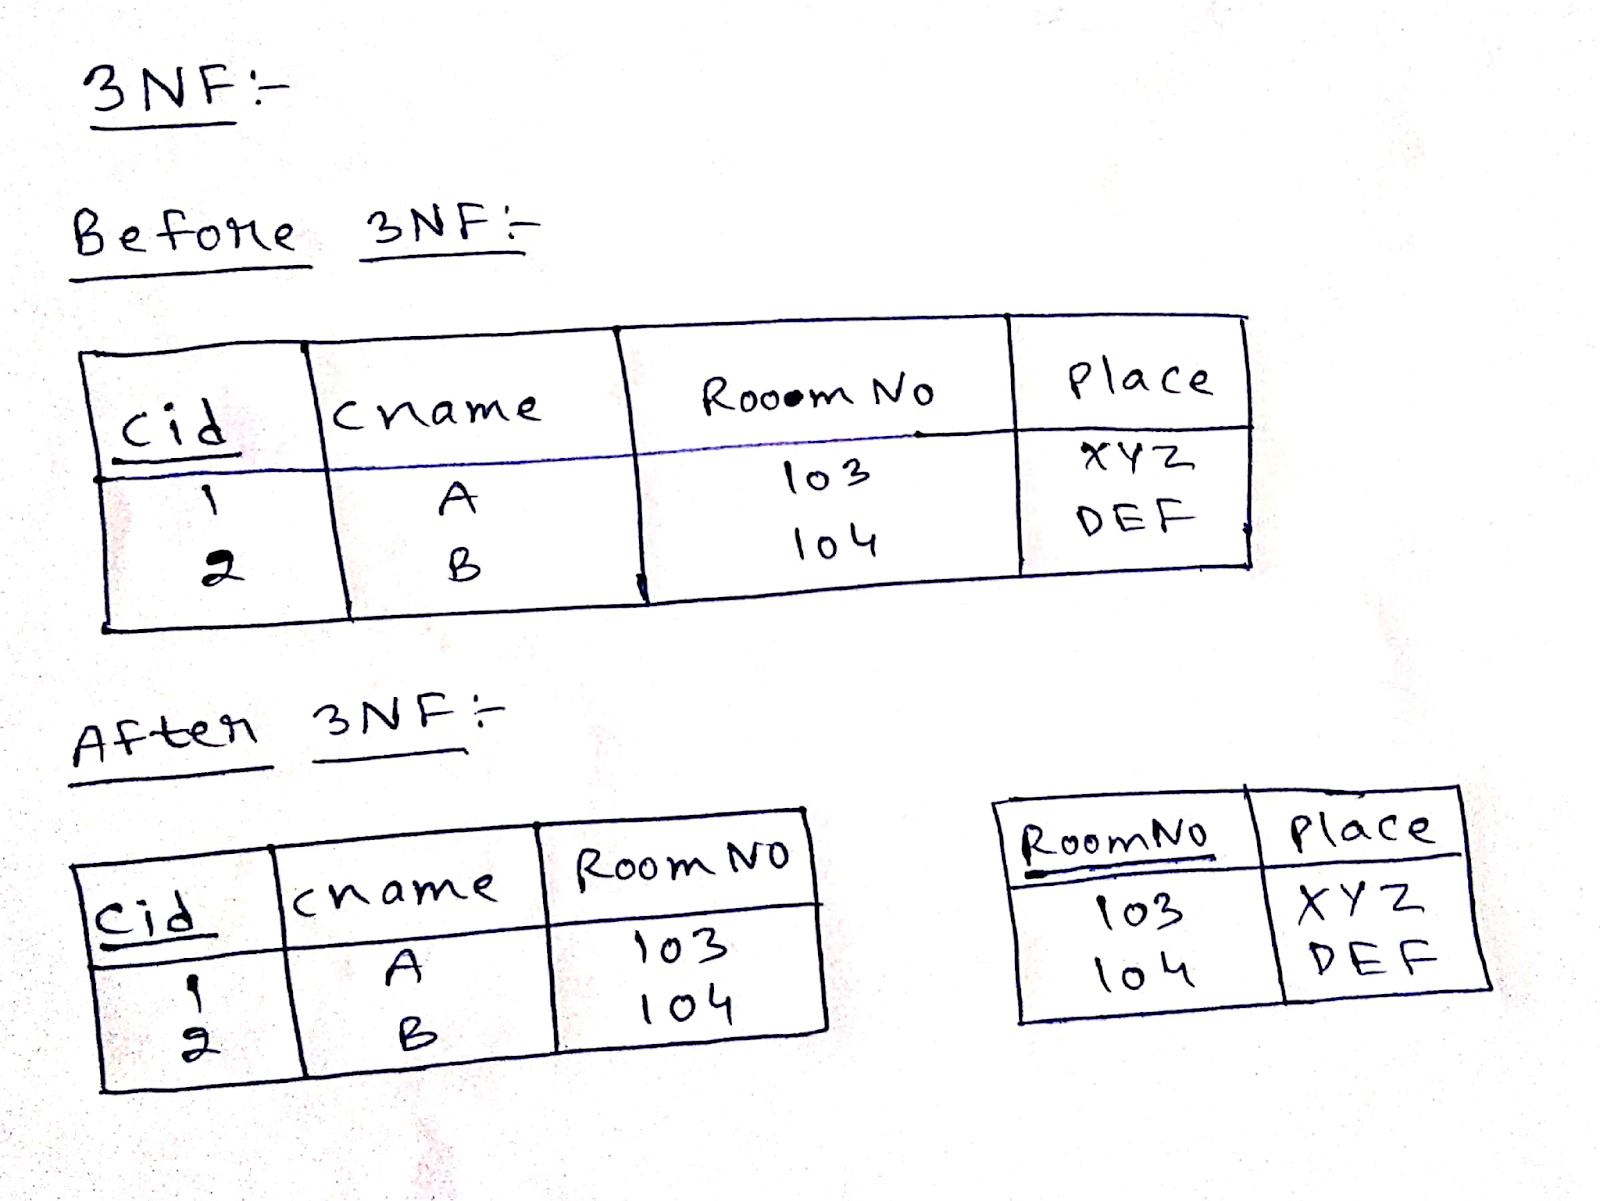 3NF:-
Before 3NF:-
cid cname Rooom No Place
1 A 103 XYZ
2 B 104 DEF
After 3NF:-
cid cname Room NO
1 A 103
2 B 104
RoomNo Place
103 XYZ
104 DEF